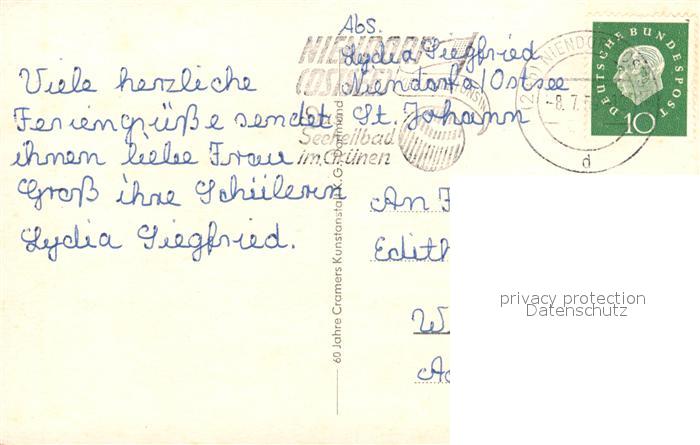 Viele herzliche
Feriengrüße sendet
ihnen liebe Frau
Groß ihre Schülerin
Lydia Siegfried.
Abs.
Lydia Siegfried
Niendorf/Ostsee
St. Johann
NIENDORF
(OSTSEE)
Das
Seeheilbad
im Grünen
NIENDORF
-8.7.5
d
DEUTSCHE BUNDESPOST
10
60 Jahre Cramers Kunstanstalt K.G., Dortmund
An F
Edith
W
privacy protection
Datenschutz